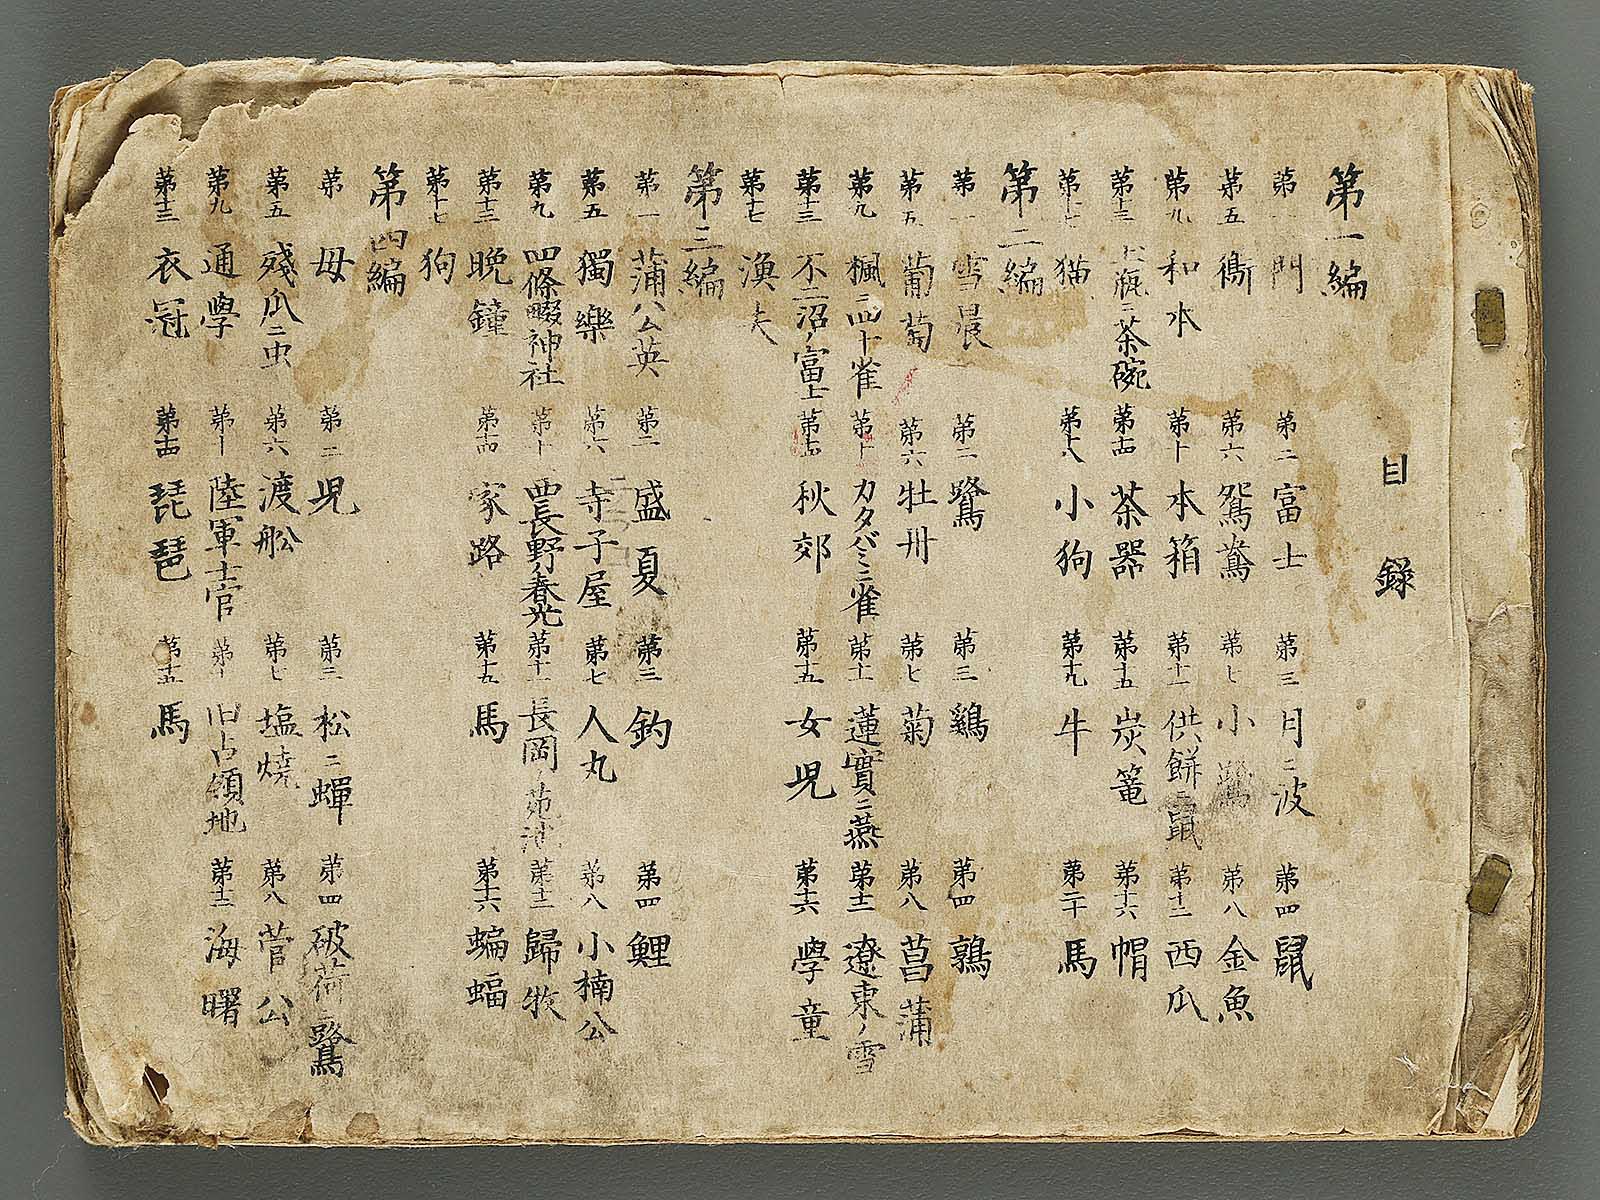 目録
第一編
第一 門 第二 富士 第三 月ニ波 第四 鼠
第五 衝 第六 鴛鴦 第七 小鷺 第八 金魚
第九 和本 第十 本箱 第十一 供餅ニ鼠 第十二 西瓜
第十三 土瓶ニ茶碗 第十四 茶器 第十五 炭篭 第十六 帽
第十七 猫 第十八 小狗 第十九 牛 第二十 馬
第二編
第一 雪晨 第二 鷺 第三 鷄 第四 鶉
第五 葡萄 第六 牡丹 第七 菊 第八 菖蒲
第九 楓ニ四十雀 第十 カタバミニ雀 第十一 蓮實ニ燕 第十二 遼東ノ雪
第十三 不二沼ノ富士 第十四 秋郊 第十五 女児 第十六 學童
第十七 漁夫
第三編
第一 蒲公英 第二 盛夏 第三 釣 第四 鯉
第五 獨樂 第六 寺子屋 第七 人丸 第八 小楠公
第九 四條畷神社 第十 西長野ノ春光 第十一 長岡ノ苑池 第十二 歸牧
第十三 晩鐘 第十四 家路 第十五 馬 第十六 蝙蝠
第十七 狗
第四編
第一 母 第二 児 第三 松ニ蟬 第四 破荷ニ鷺
第五 殘瓜ニ虫 第六 渡舩 第七 塩燒 第八 菅公
第九 通學 第十 陸軍士官 第十一 旧占領地 第十二 海曙
第十三 衣冠 第十四 琵琶 第十五 馬